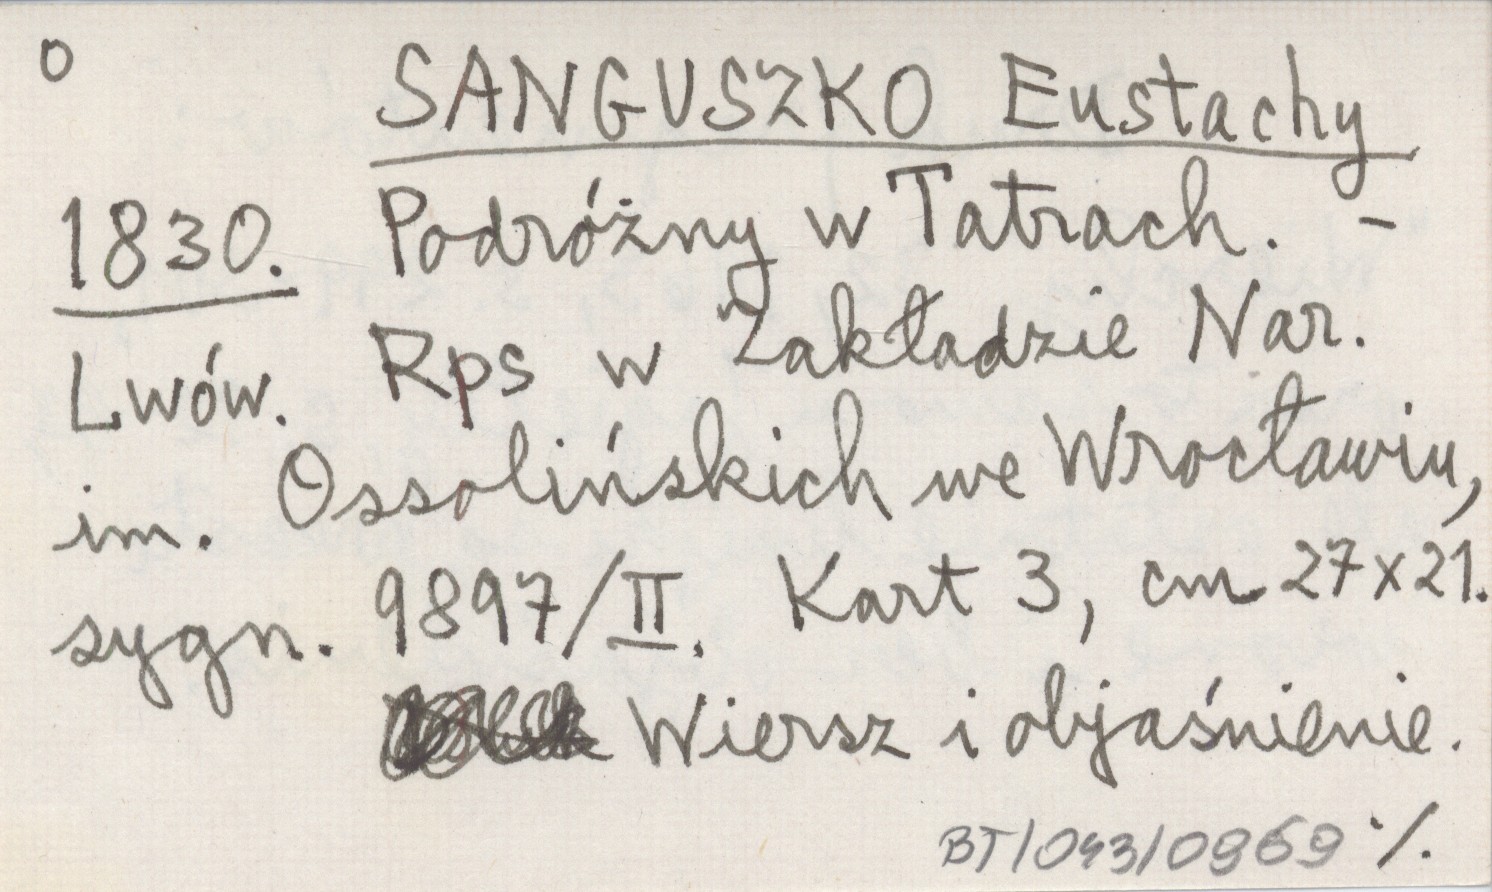 o
SANGUSZKO Eustachy
1830. Podróżny w Tatrach. –
Lwów. Rps w Zakładzie Nar.
im. Ossolińskich we Wrocławiu,
sygn. 9897/II. Kart 3, cm 27x21.
Wiersz i objaśnienie.
BT/043/0969 ·/.